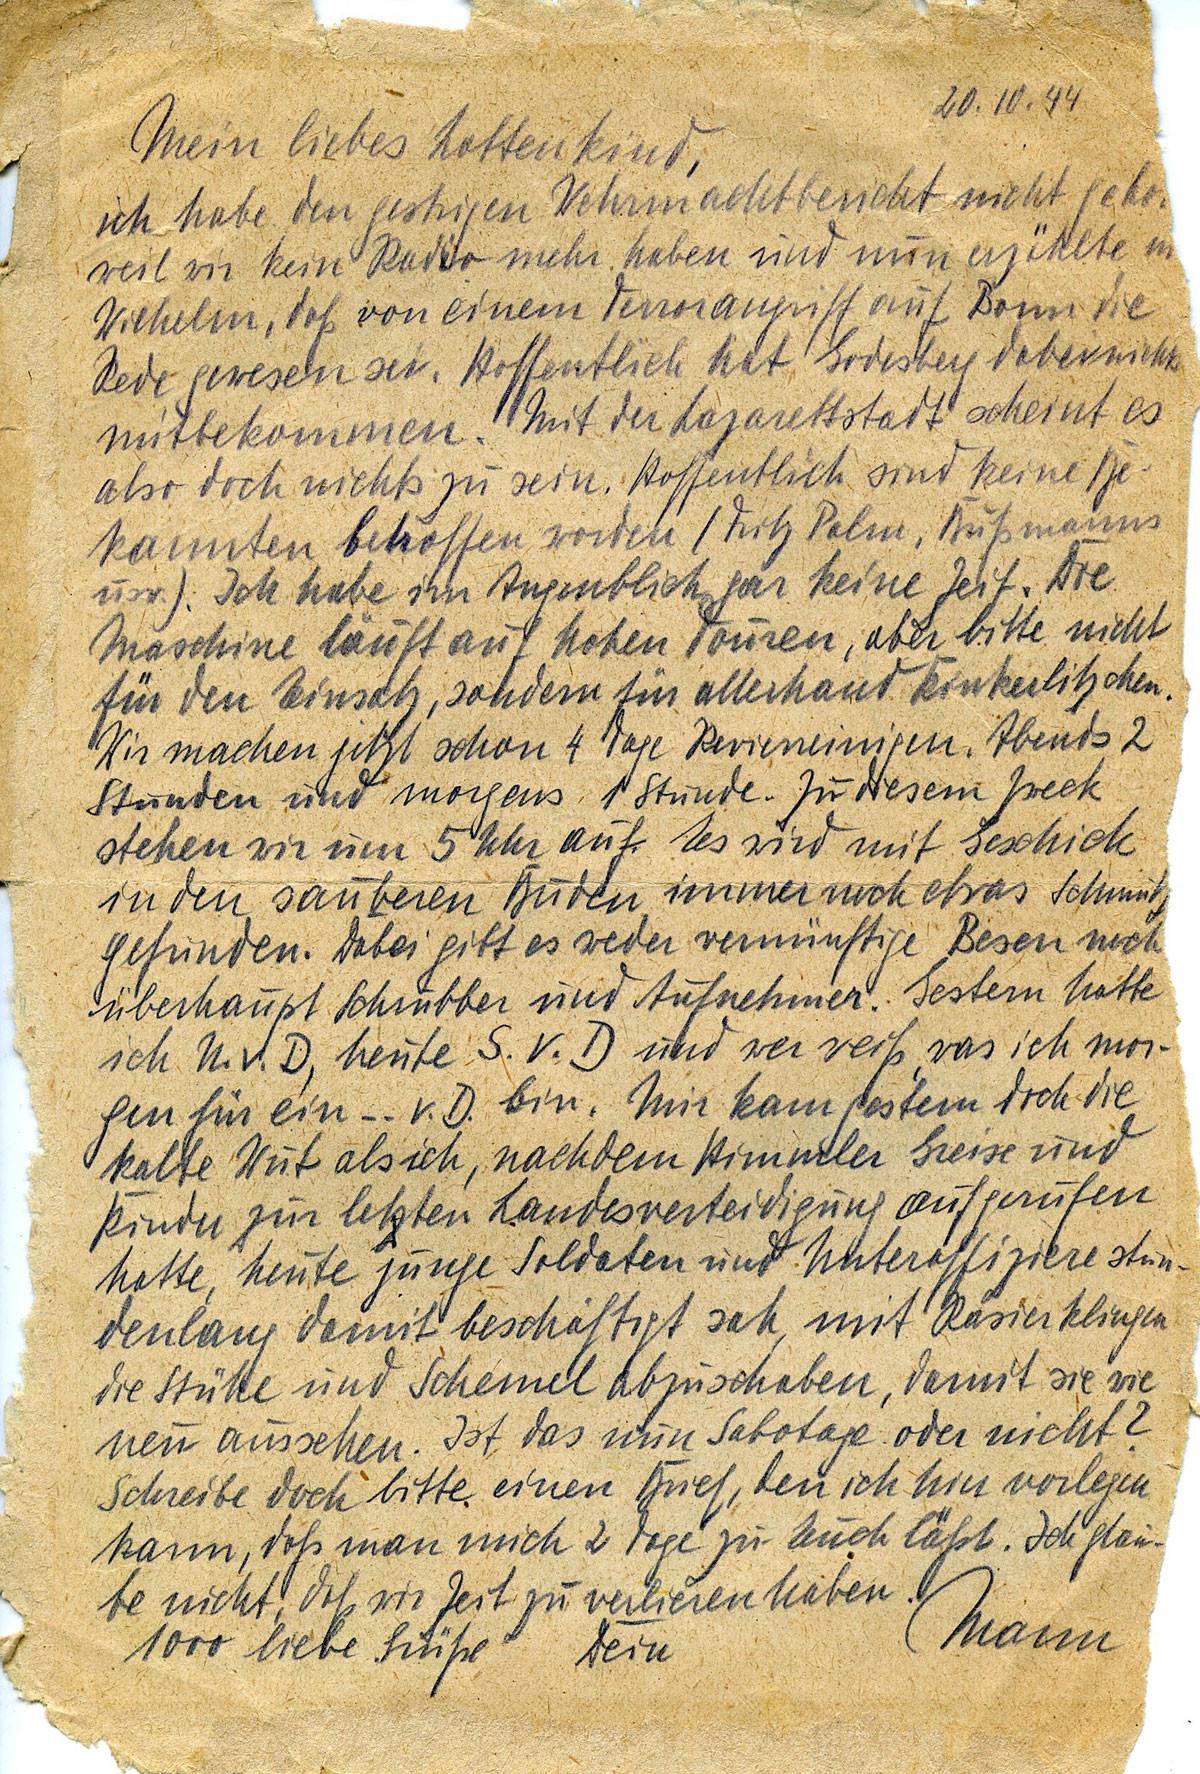 20.10.44
Mein liebes Lottenkind,
ich habe den gestrigen Wehrmachtbericht nicht gehö
weil wir kein Radio mehr haben und nun erzählte m
Wilhelm, daß von einem Terrorangriff auf Bonn die
Rede gewesen sei. Hoffentlich hat Godesberg dabei nichts
mitbekommen. Mit der Lazarettstadt scheint es
also doch nichts zu sein. Hoffentlich sind keine Be-
kannten betroffen worden (Fritz Palm, Bußmanns
usw.). Ich habe im Augenblick gar keine Zeit. Die
Maschine läuft auf hohen Touren, aber bitte nicht
für den Einsatz, sondern für allerhand Kinkerlitzchen.
Wir machen jetzt schon 4 Tage Revierreinigen. Abends 2
Stunden und morgens 1 Stunde. Zu diesem Zweck
stehen wir um 5 Uhr auf. Es wird mit Geschick
in den sauberen Buden immer noch etwas Schmutz
gefunden. Dabei gibt es weder vernünftige Besen noch
überhaupt Schrubber und Aufnehmer. Gestern hatte
ich U.v.D, heute S.v.D und wer weiß was ich mor-
gen für ein -- v.D. bin. Mir kam gestern doch die
kalte Wut als ich, nachdem Himmler Greise und
Kinder zur letzten Landesverteidigung aufgerufen
hatte, heute junge Soldaten und Unteroffiziere stun-
denlang damit beschäftigt sah, mit Rasierklingen
die Stühle und Schemel abzuschaben, damit sie wie
neu aussehen. Ist das nun Sabotage oder nicht?
Schreibe doch bitte einen Brief, den ich hier vorlegen
kann, daß man mich 2 Tage zu Euch läßt. Ich glau-
be nicht, daß wir Zeit zu verlieren haben.
1000 liebe Grüße Dein Mann